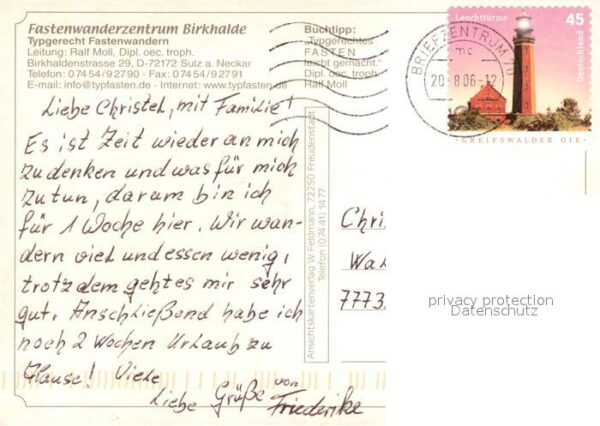 Fastenwanderzentrum Birkhalde
Typgerecht Fastenwandern
Leitung: Ralf Moll, Dipl. oec. troph.
Birkhaldenstrasse 29, D-72172 Sulz a. Neckar
Telefon: 0 74 54/9 27 90 · Fax: 0 74 54/9 27 91
E-mail: info@typfasten.de · Internet: www.typfasten.de
Buchtipp:
„Typgerechtes
FASTEN
leicht gemacht."
Dipl. oec. troph.
Ralf Moll
Liebe Christel, mit Familie!
Es ist Zeit wieder an mich
zu denken und was für mich
zu tun, darum bin ich
für 1 Woche hier. Wir wan-
dern viel und essen wenig,
trotzdem gehtes mir sehr
gut. Anschließend habe ich
noch 2 Wochen Urlaub zu
Hause! Viele
Liebe Grüße von
Friederike
Ansichtskartenverlag W. Feldmann, 72250 Freudenstadt
Telefon (0 74 41) 14 77
BRIEFZENTRUM 78
mc
20 8.06-12
Leuchttürme 45
Deutschland
GREIFSWALDER OIE
Chri
Wa
7773
privacy protection
Datenschutz